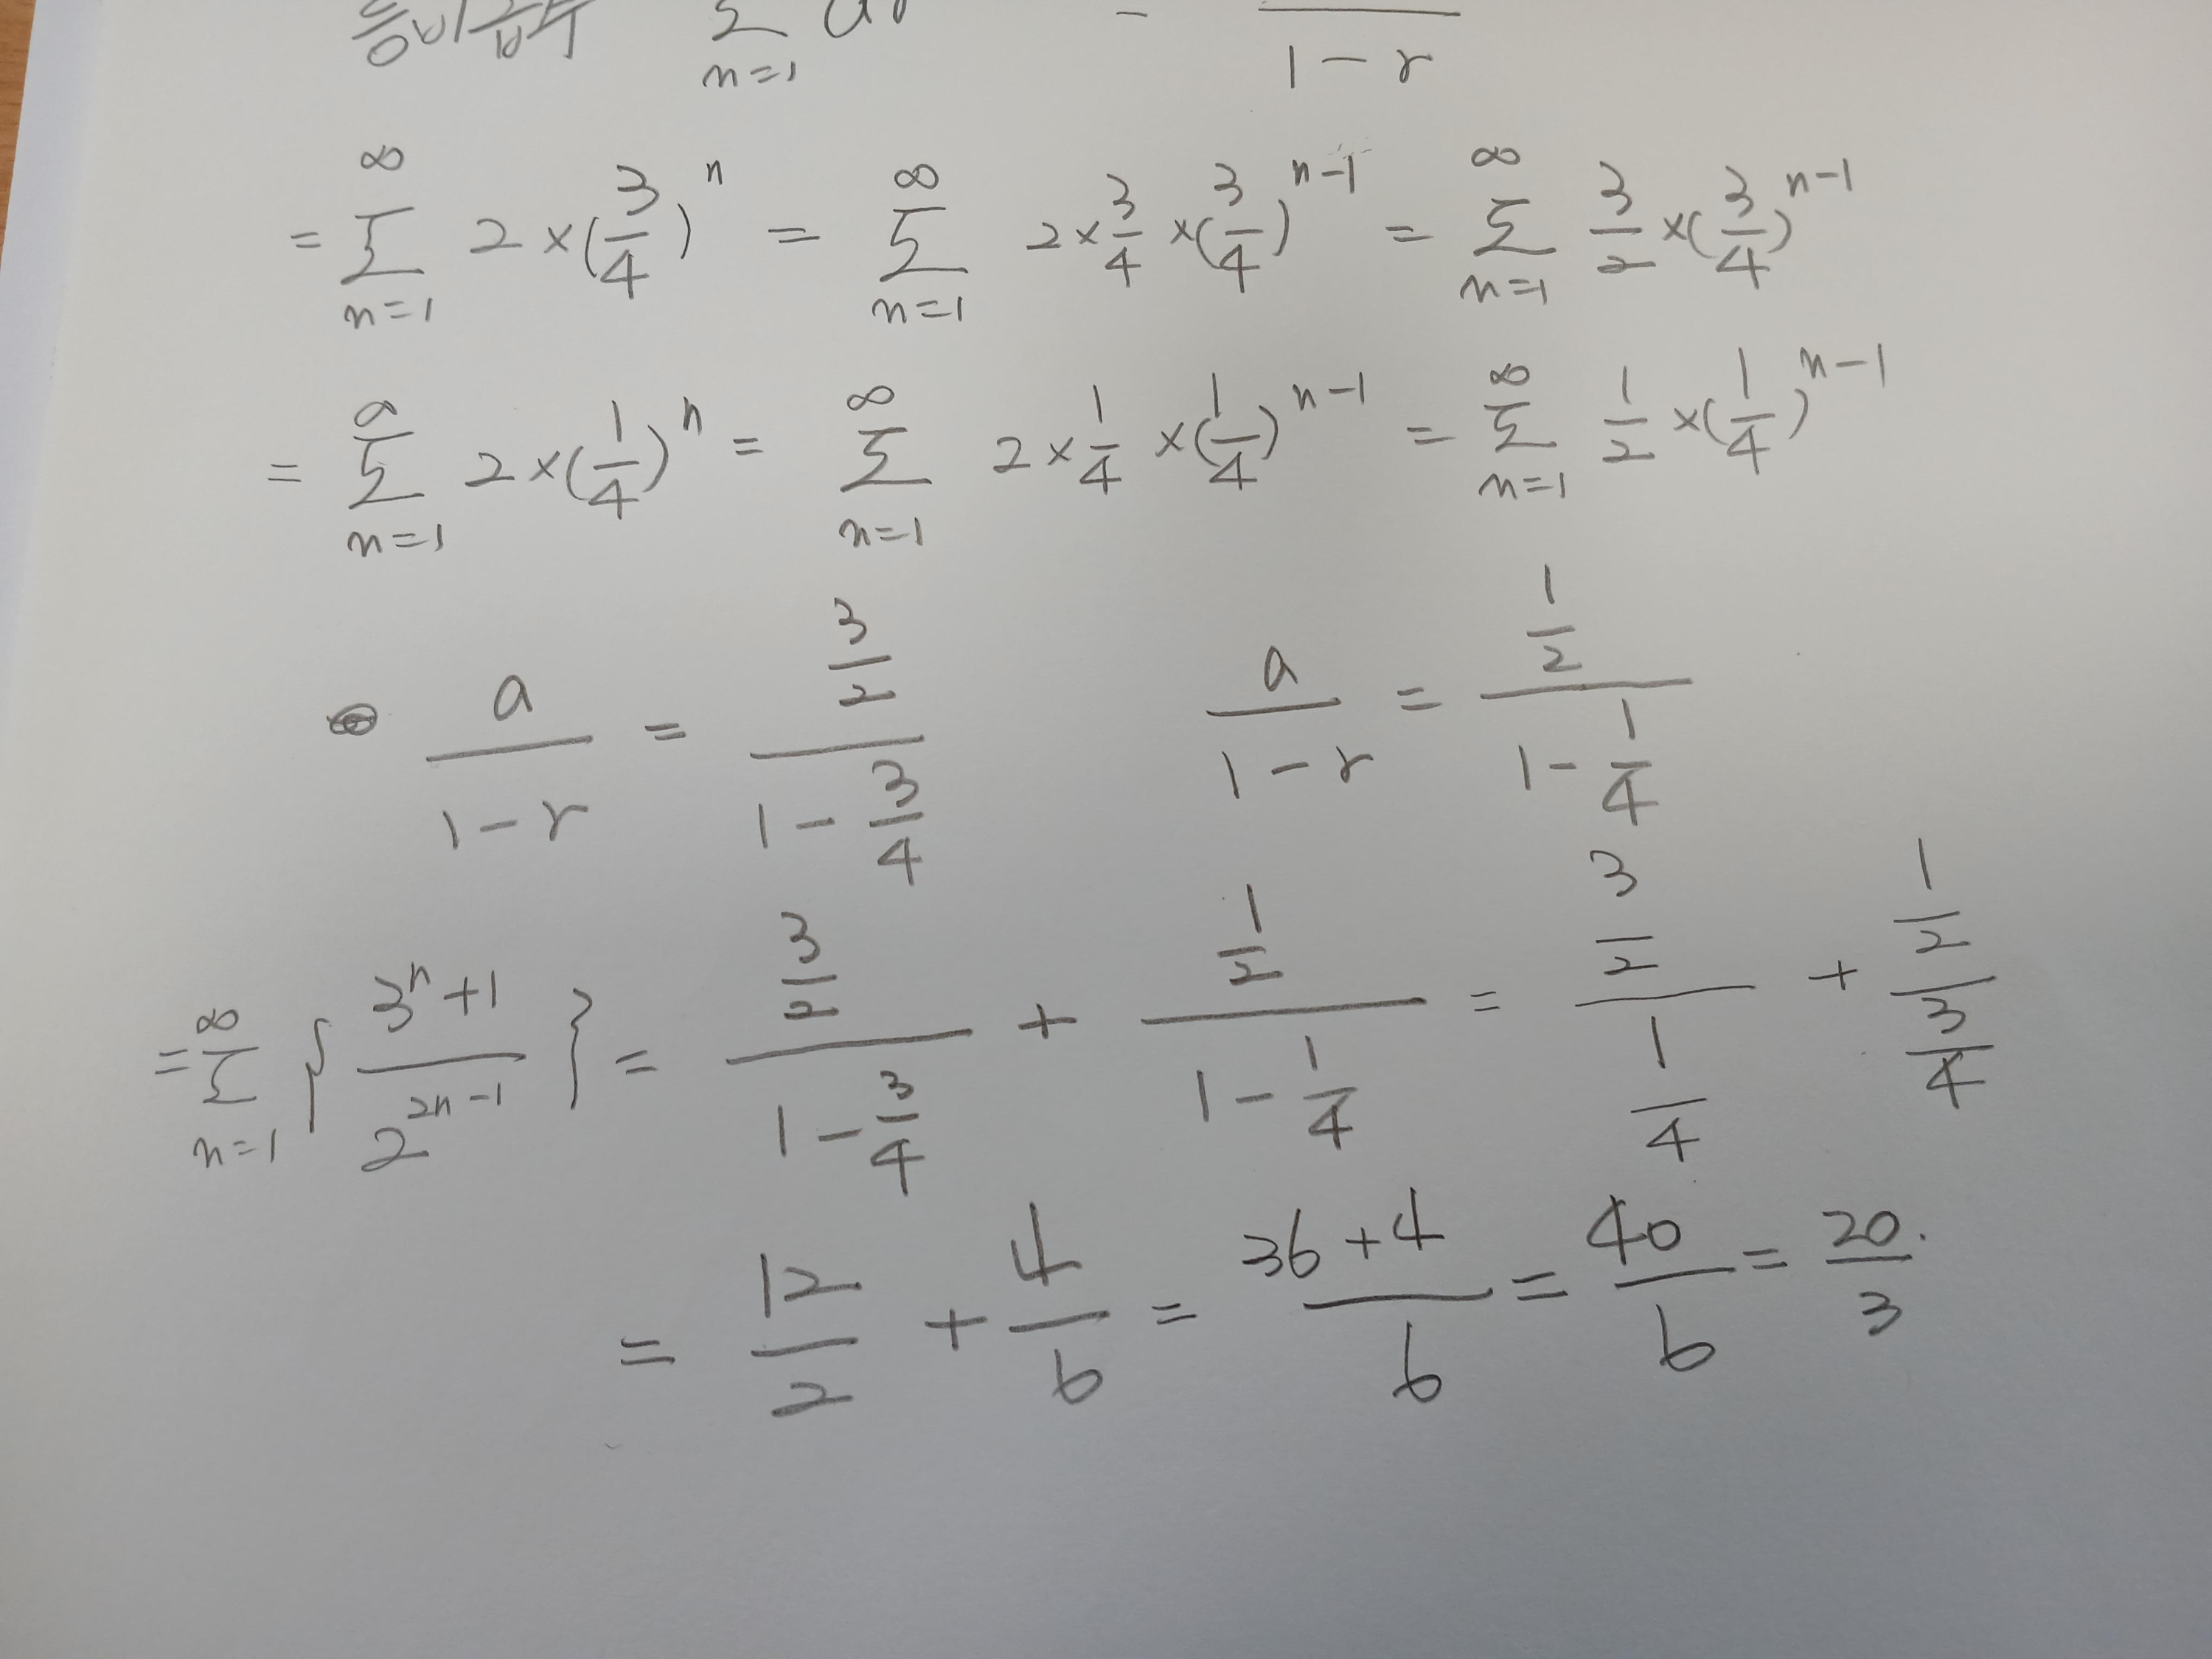 등비급수 ∑ n=1 = / 1-r
= ∑_{n=1}^{∞} 2×(3/4)^n = ∑_{n=1}^{∞} 2×3/4×(3/4)^{n-1} = ∑_{n=1}^{∞} 3/2×(3/4)^{n-1}
= ∑_{n=1}^{∞} 2×(1/4)^n = ∑_{n=1}^{∞} 2×1/4×(1/4)^{n-1} = ∑_{n=1}^{∞} 1/2×(1/4)^{n-1}
a/(1-r) = (3/2)/(1-3/4) a/(1-r) = (1/2)/(1-1/4)
= ∑_{n=1}^{∞} {(3^n+1)/2^{2n-1}} = (3/2)/(1-3/4) + (1/2)/(1-1/4) = (3/2)/(1/4) + (1/2)/(3/4)
= 12/2 + 4/6 = (36+4)/6 = 40/6 = 20/3.